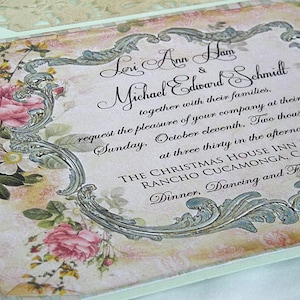 Lori Ann Ham
&
Michael Edward Schmidt
together with their families,
request the pleasure of your company at their
Sunday, October eleventh, Two thou
at three thirty in the afterno
The Christmas House Inn
Rancho Cucamonga, C
Dinner, Dancing and F